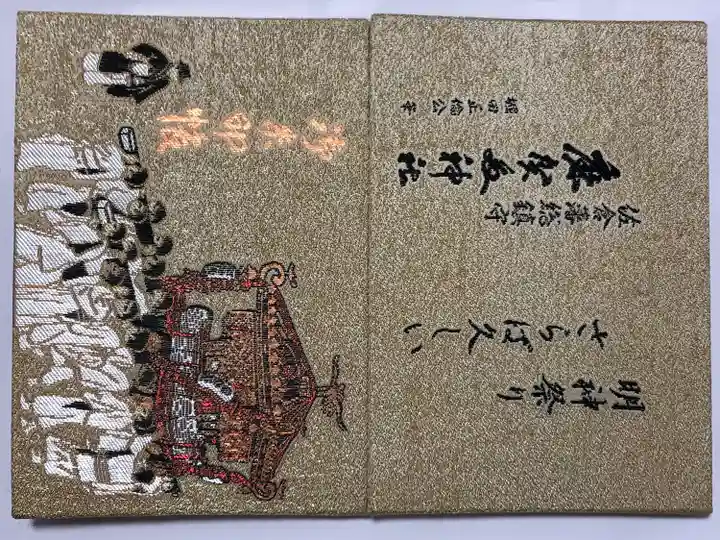 明神祭り
さらば久しい
佐倉藩総鎮守
麻賀多神社
堀田正倫公筆
御朱印帳